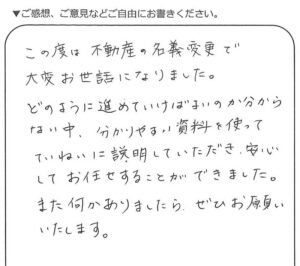 ▼ご感想、ご意見などご自由にお書きください。
この度は不動産の名義変更で
大変お世話になりました。
どのように進めていけばよいのか分から
ない中、分かりやすい資料を使って
ていねいに説明していただき、安心
してお任せすることができました。
また何かありましたら、ぜひお願い
いたします。